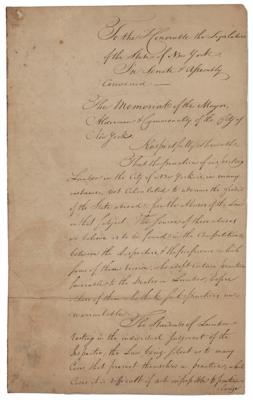 To the Honorable the Legislature
of the State of New York
In Senate & Assembly
Convened
The Memorial of the Mayor,
Aldermen & Commonalty of the City of
New York.
Respectfully Sheweth
That the practice of inspecting
Lumber in the City of New York is, in many
instances, not calculated to advance the
of the State abroad, for the Abuses of the Law
in that Subject. The source of these abuses
is believed to be found in the Competition
between the Inspectors, & the preference which
some of them receive, who adopt certain practices
favorable to the Dealers in Lumber, before
others of them who think such practices are
unwarrantable.
The Standard of Lumber
resting in the individual judgment of the
Inspector, the Law being silent as to many
Cases that present themselves in practice, which
Cases it is difficult if not impossible to